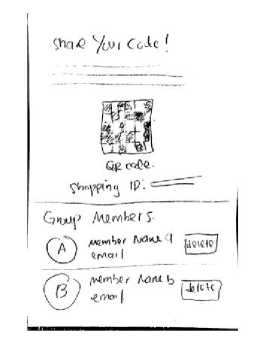 share Your Code!
QR code.
Shopping ID:
Group Members
A
member Name a
email
delete
B
member Name b
email
delete